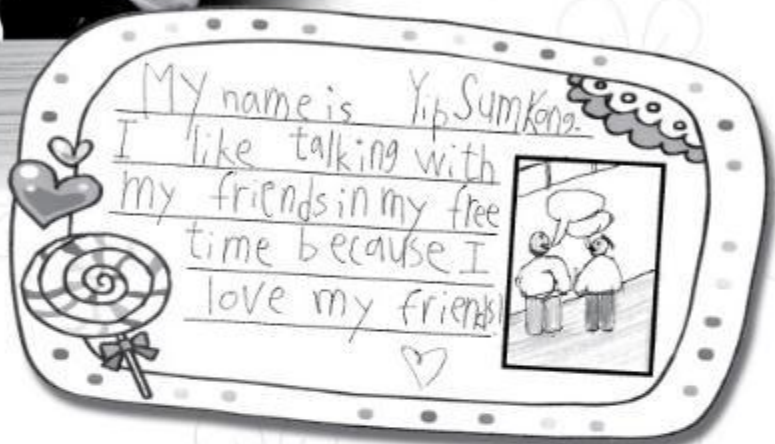 My name is Yip Sum Kong.
I like talking with
my friends in my free
time because I
love my friends!